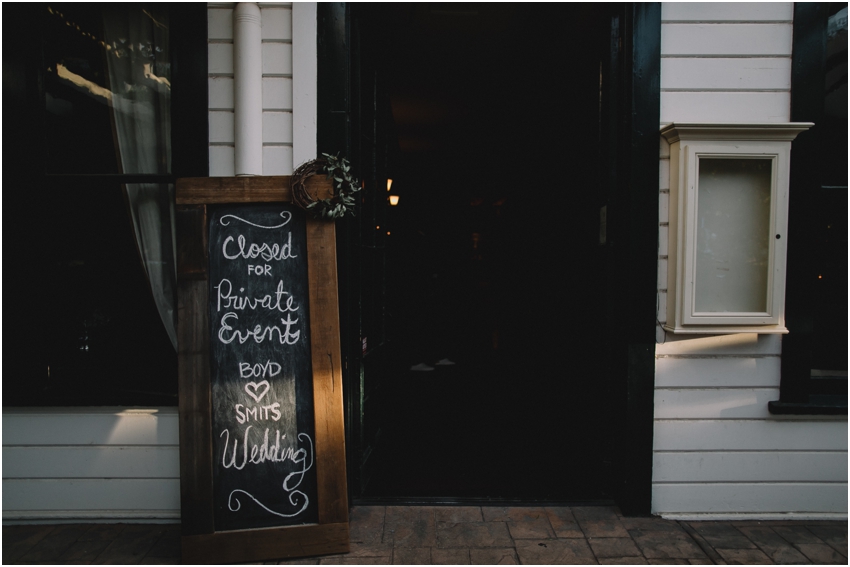 Closed
FOR
Private
Event
BOYD
♡
SMITS
Wedding